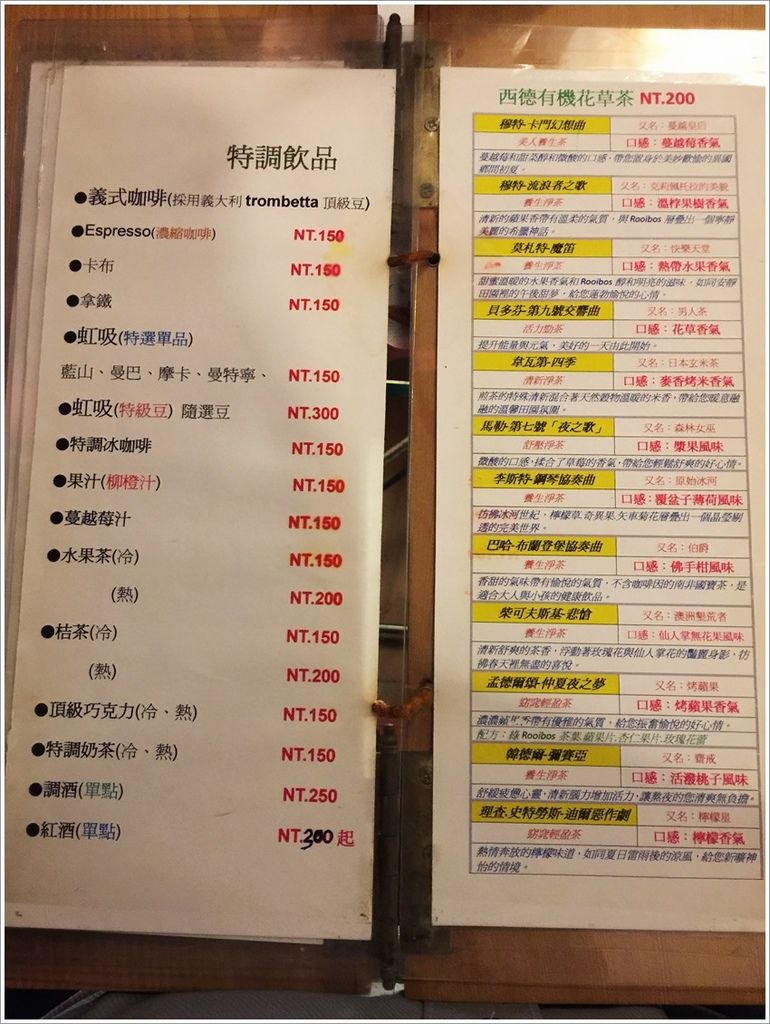 特調飲品
●義式咖啡(採用義大利 trombetta 頂級豆)
●Espresso(濃縮咖啡) NT.150
●卡布 NT.150
●拿鐵 NT.150
●虹吸(特選單品)
藍山、曼巴、摩卡、曼特寧、 NT.150
●虹吸(特級豆) 隨選豆 NT.300
●特調冰咖啡 NT.150
●果汁(柳橙汁) NT.150
●蔓越莓汁 NT.150
●水果茶(冷) NT.150
(熱) NT.200
●桔茶(冷) NT.150
(熱) NT.200
●頂級巧克力(冷、熱) NT.150
●特調奶茶(冷、熱) NT.150
●調酒(單點) NT.250
●紅酒(單點) NT.300 起
西德有機花草茶 NT.200
穆特-卡門幻想曲 又名：蔓越皇后
美人養生茶 口感：蔓越莓香氣
蔓越莓和甜菜醇和微酸的口感，帶您置身於美妙歡愉的異國
鄉間初夏。
穆特-流浪者之歌 又名：克莉佩托拉的美貌
養生淨茶 口感：溫桲果樹香氣
清新的蘋果香帶有溫柔的氣質，與 Rooibos 層疊出一個寧靜
美麗的希臘神話。
莫札特-魔笛 又名：快樂天堂
養生淨茶 口感：熱帶水果香氣
甜蜜溫暖的水果香氣和 Rooibos 醇和明亮的滋味，如同安靜
田園裡的午後甜夢，給您蓬勃愉悅的心情。
貝多芬-第九號交響曲 又名：男人茶
活力勁茶 口感：花草香氣
提升能量與元氣，美好的一天由此開始。
韋瓦第-四季 又名：日本玄米茶
清新淨茶 口感：麥香烤米香氣
煎茶的特殊清新混合著天然穀物溫暖的米香，帶給您暖意融
融的溫馨田園氛圍。
馬勒-第七號「夜之歌」 又名：森林女巫
舒壓淨茶 口感：漿果風味
微酸的口感，揉合了草莓的香氣，帶給您輕鬆舒爽的好心情。
李斯特-鋼琴協奏曲 又名：原始冰河
養生淨茶 口感：覆盆子薄荷風味
彷彿冰河世紀，檸檬草.奇異果.矢車菊花層疊出一個晶瑩剔
透的完美世界。
巴哈-布蘭登堡協奏曲 又名：伯爵
養生淨茶 口感：佛手柑風味
香甜的氣味帶有愉悅的氣質，不含咖啡因的南非國寶茶，是
適合大人與小孩的健康飲品。
柴可夫斯基-悲愴 又名：澳洲墾荒者
養生淨茶 口感：仙人掌無花果風味
清新舒爽的茶香，浮動著玫瑰花與仙人掌花的豔麗身影，彷
彿春天裡無盡的喜悅。
孟德爾頌-仲夏夜之夢 又名：烤蘋果
窈窕輕盈茶 口感：烤蘋果香氣
濃濃蘋果香帶有優雅的氣質，給您振奮愉悅的好心情。
配方：綠 Rooibos 茶葉.蘋果片.杏仁果片.玫瑰花蕾
韓德爾-彌賽亞 又名：齋戒
養生淨茶 口感：活潑桃子風味
舒緩疲憊心靈，清新腦力增加活力，讓熬夜的您清爽無負擔。
理查.史特勞斯-迪爾惡作劇 又名：檸檬星
窈窕輕盈茶 口感：檸檬香氣
熱情奔放的檸檬味道，如同夏日雷雨後的涼風，給您新曠神
怡的情境。